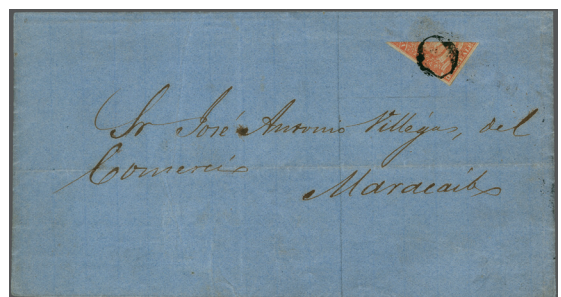 Sr José Antonio Villégas, del
Comercio
Maracaibo